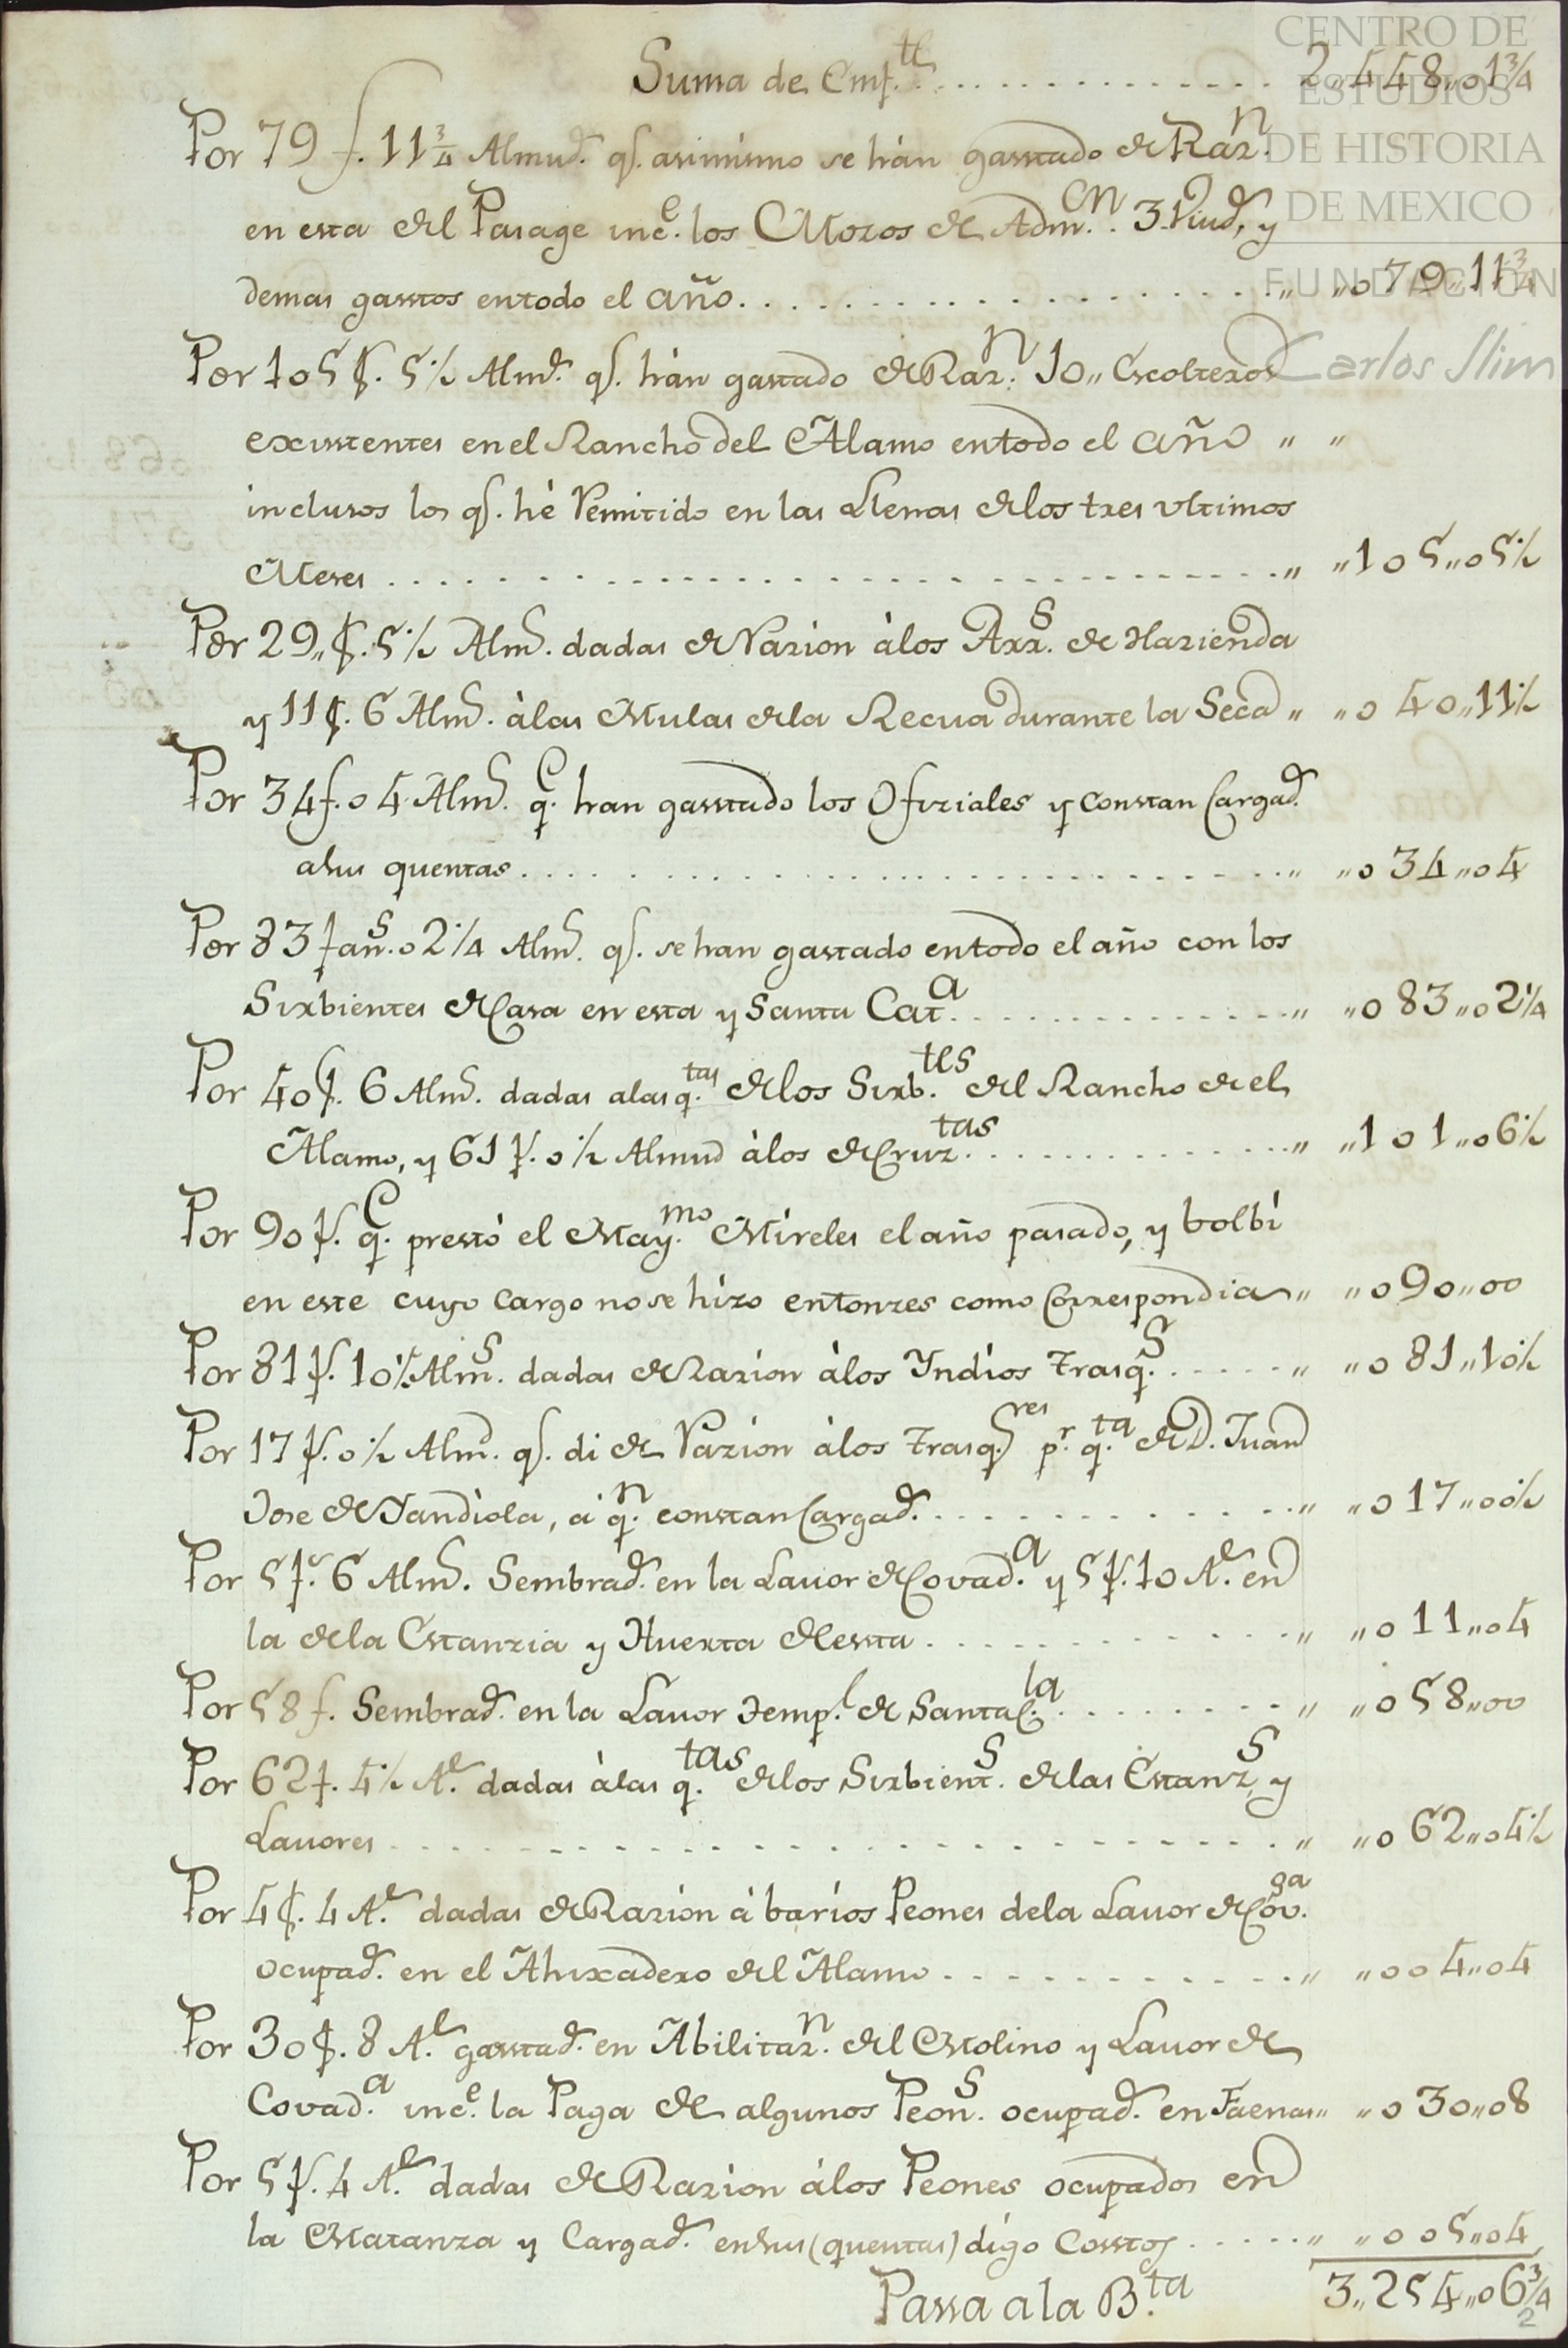 CENTRO DE
ESTUDIOS
DE HISTORIA
DE MEXICO
FUNDACIÓN
Carlos Slim
Suma de Enf.te . . . . . . . . . . . . . . 2„448„01¾
Por 79 f. 11¾ Almud.s q.e asimismo se hán gastado de Raz.n
en esta del Parage inc.e los Mozos de Adm.on 3 Viud.s y
demas gastos entodo el año. . . . . . . . . . . . . „ „0 79„11¾
Por 105 f. 5½ Almd.s q.e hán gastado de Raz.n 10„ Escolteros
existentes en el Rancho del Alamo entodo el año „ „
inclusos los q.e hé Remitido en las Llenas delos tres vltimos
Meses . . . . . . . . . . . . . . . . . . . „ „105„05½
Por 29„ f. 5½ Alm.s dadas de Razion álos Arr.s de Hazienda
y 11 f. 6 Alm.s álas Mulas dela Recua durante la Seca „ „0 40„11½
Por 34 f. 04 Alm.s q.e han gastado los Ofiziales y constan Cargad.s
asus quentas . . . . . . . . . . . . . . . . „ „0 34„04
Por 83 fan.s 02¼ Alm.s q.e se han gastado entodo el año con los
Sirbientes de Casa en esta y Santa Cat.a . . . . . . . . . „ „0 83„02¼
Por 40 f. 6 Alm.s dadas alas q.tas delos Sirb.tes del Rancho de el
Alamo, y 61 f. 0½ Almud álos de Cruz.tas . . . . . . . . . „ „101„06½
Por 90 f. q.e prestó el May.mo Míreles el año pasado, y bolbí
en este cuyo Cargo no se hizo entonzes como Correspondia „ „0 90„00
Por 81 f. 10½ Alm.s dadas de Razion álos Yndios Trasq.s . . . . . „ „0 81„10½
Por 17 f. 0½ Alm.s q.e di de Razion álos Trasq.res p.r q.ta de D. Juan
Jose de Yandiola, á q.n constan Cargad.s . . . . . . . . . . „ „0 17„00½
Por 5 f.s 6 Alm.s Sembrad.s en la Lauor de Covad.a y 5 f. 10 A.s en
la dela Estanzia y Huerta de esta . . . . . . . . . . . „ „0 11„04
Por 58 f. Sembrad.s en la Lauor Temp.l de Santa C.la . . . . . . . „ „0 58„00
Por 62 f. 4½ A.s dadas álas q.tas delos Sirbient.s delas Estanz.s y
Lauores . . . . . . . . . . . . . . . . . . . „ „0 62„04½
Por 4 f. 4 A.s dadas de Razion á baríos Peones dela Lauor de Cov.ga
ocupad.s en el Ahixadero del Alamo . . . . . . . . . . . „ „004„04
Por 30 f. 8 A.s gastad.s en Abilitaz.n del Molino y Lauor de
Covad.a inc.e la Paga de algunos Peon.s ocupad.s en Faenas „ „0 30„08
Por 5 f. 4 A.s dadas de Razion álos Peones ocupados en
la Matanza y Cargad.s ensus (quentas) dígo Costos . . . . . „ „005„04
Passa a la B.ta 3„254„06¾
2